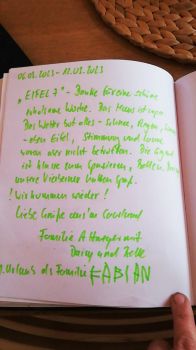 06.01.2023 - 12.01.2023
"EIFEL 7" - Danke für eine schöne
erholsame Woche. Das Haus ist super
Das Wetter bot alles - Schnee, Regen, Sonne
Eifel, Stimmung und Laune
waren aber nicht betroffen. Die Gegend
ist klasse zum Spazieren,
unsere Vierbeiner hatten Spaß.
! Wir kommen wieder !
Liebe Grüße aus'm
Familie A mit
Daisy und Belle
Urlaub als Familie FABIAN